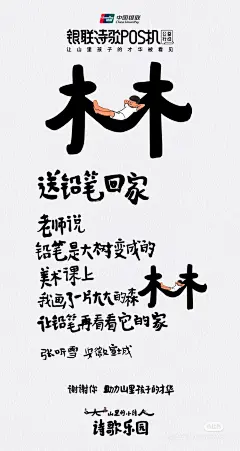 中国银联
银联诗歌POS机
让山里孩子的才华被看见
木木
送铅笔回家
老师说
铅笔是大树变成的
美术课上
我画了一片大大的森林
让铅笔再看看它的家
张听雪 安徽宣城
谢谢你 助力山里孩子的才华
大山里的小诗人
诗歌乐园